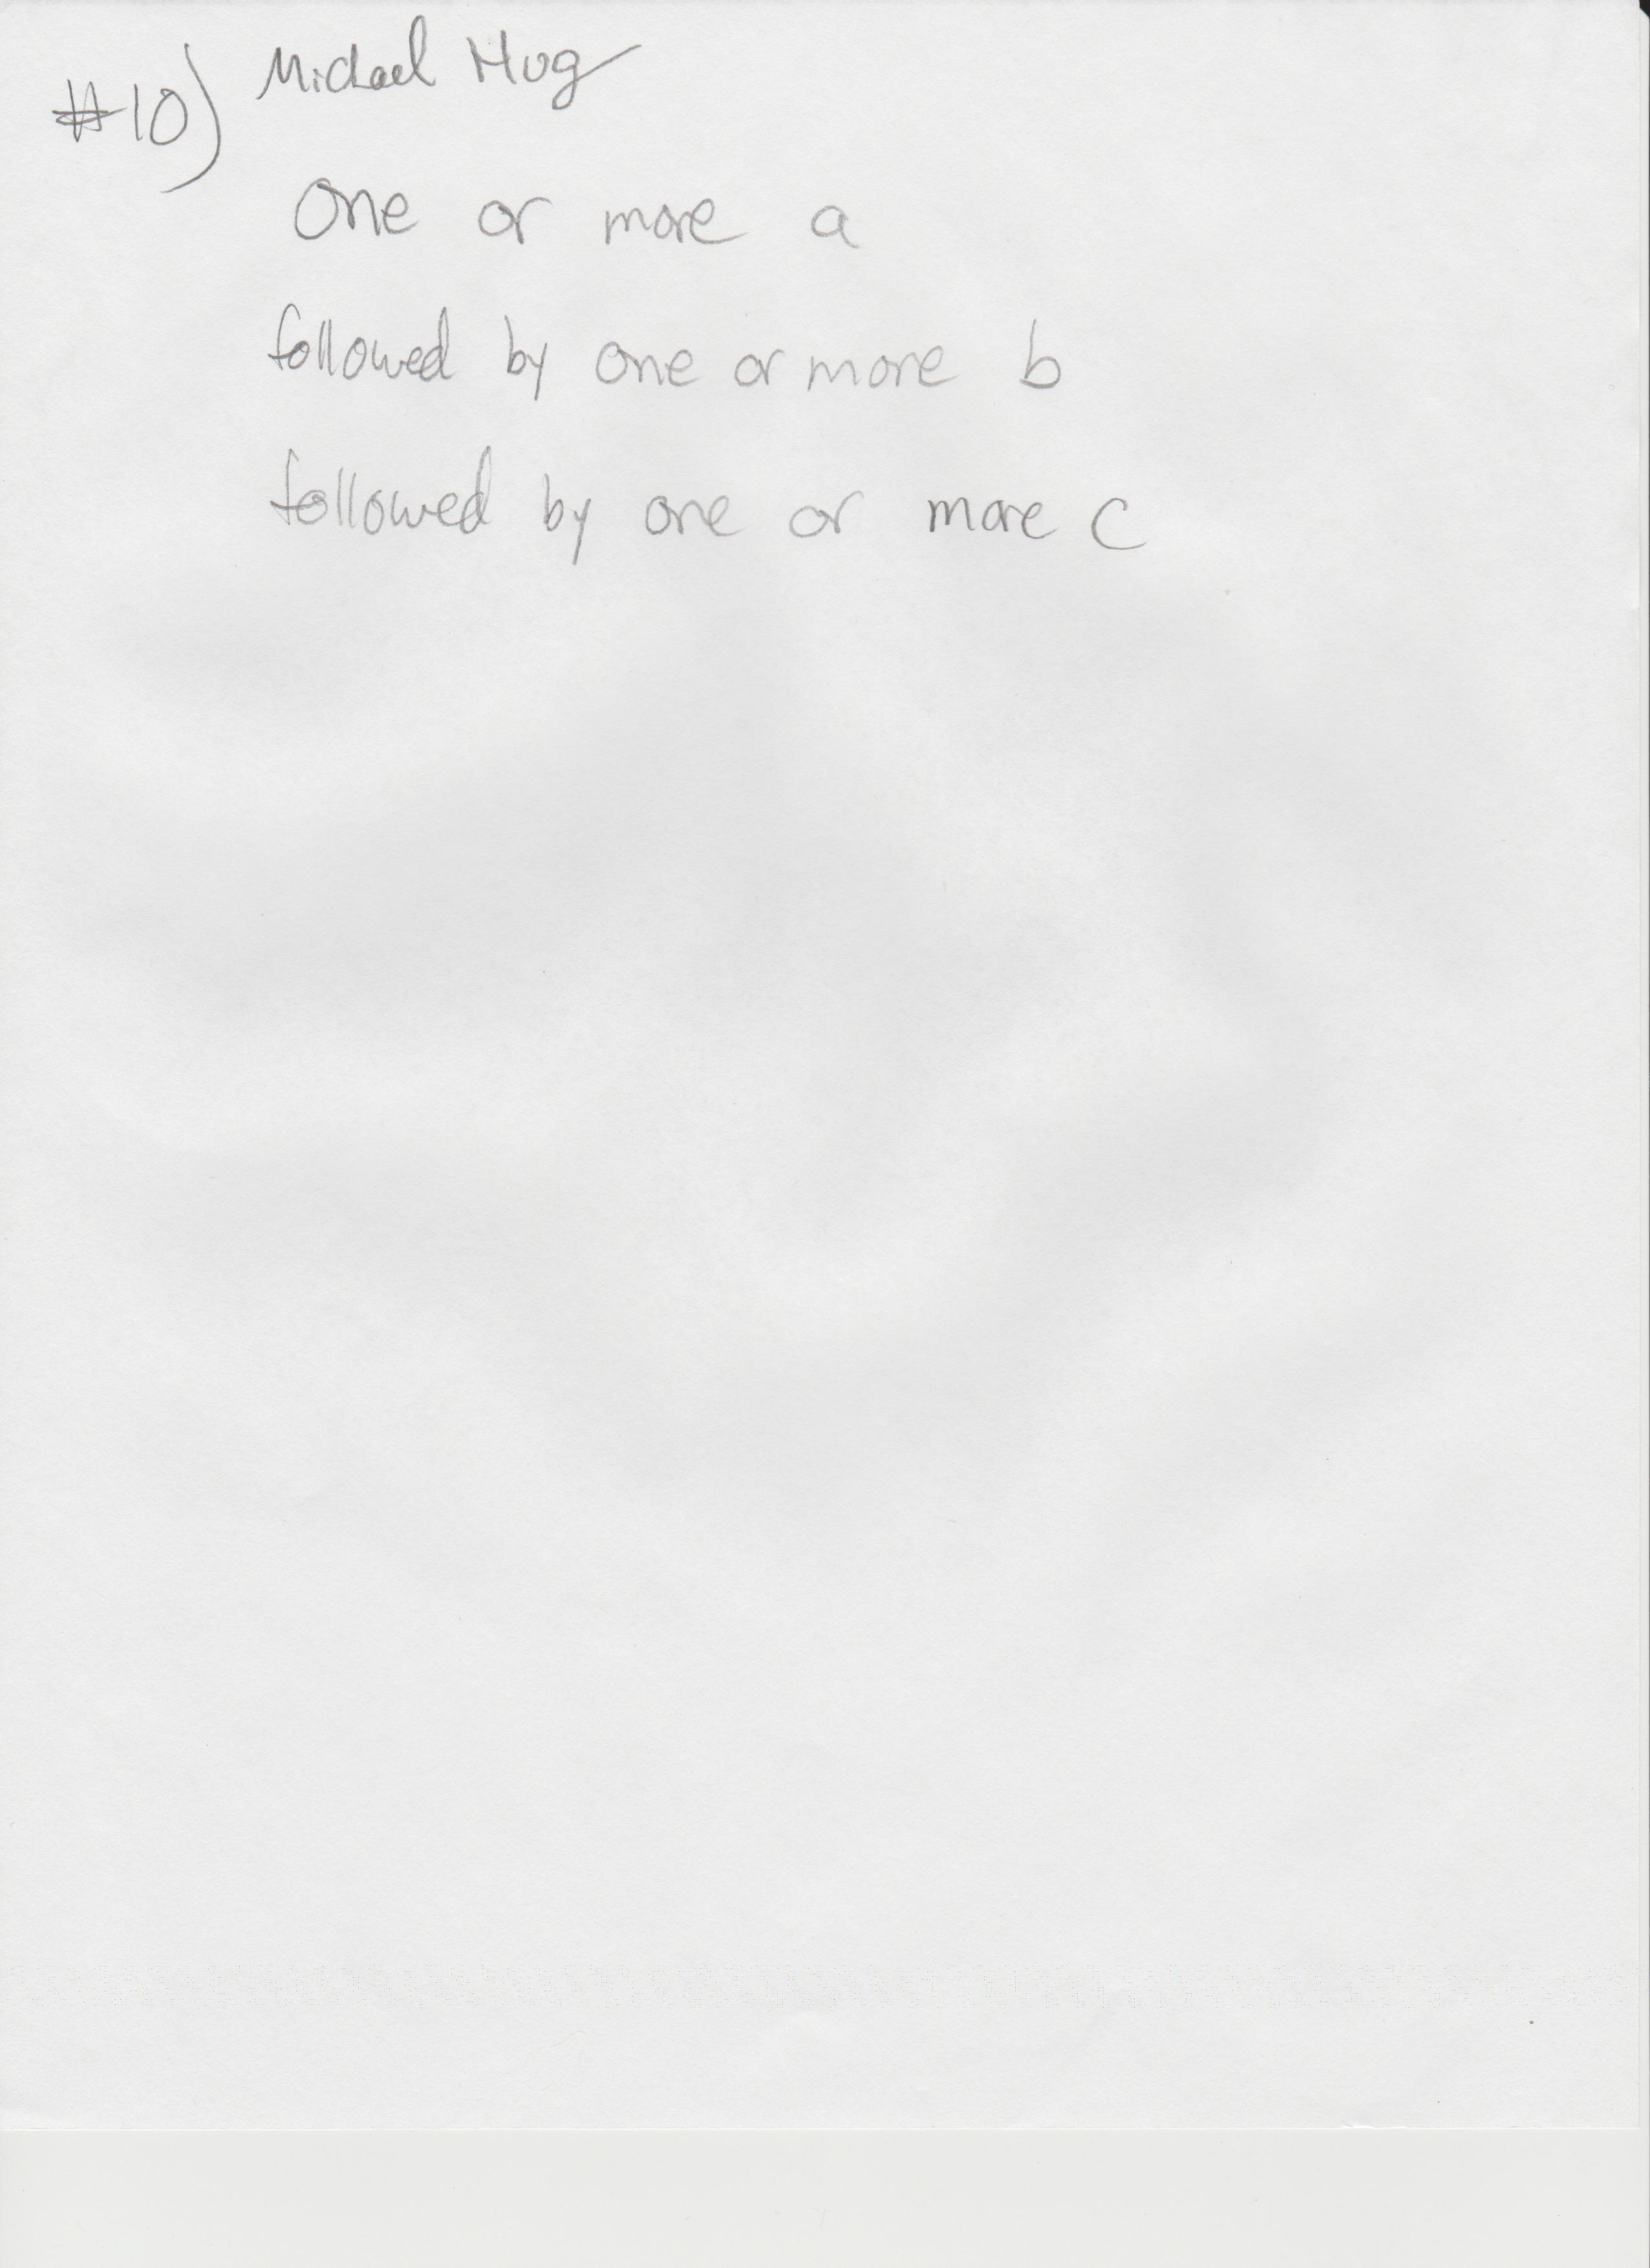 Michael Hug
#10)
One or more a
followed by one or more b
followed by one or more c